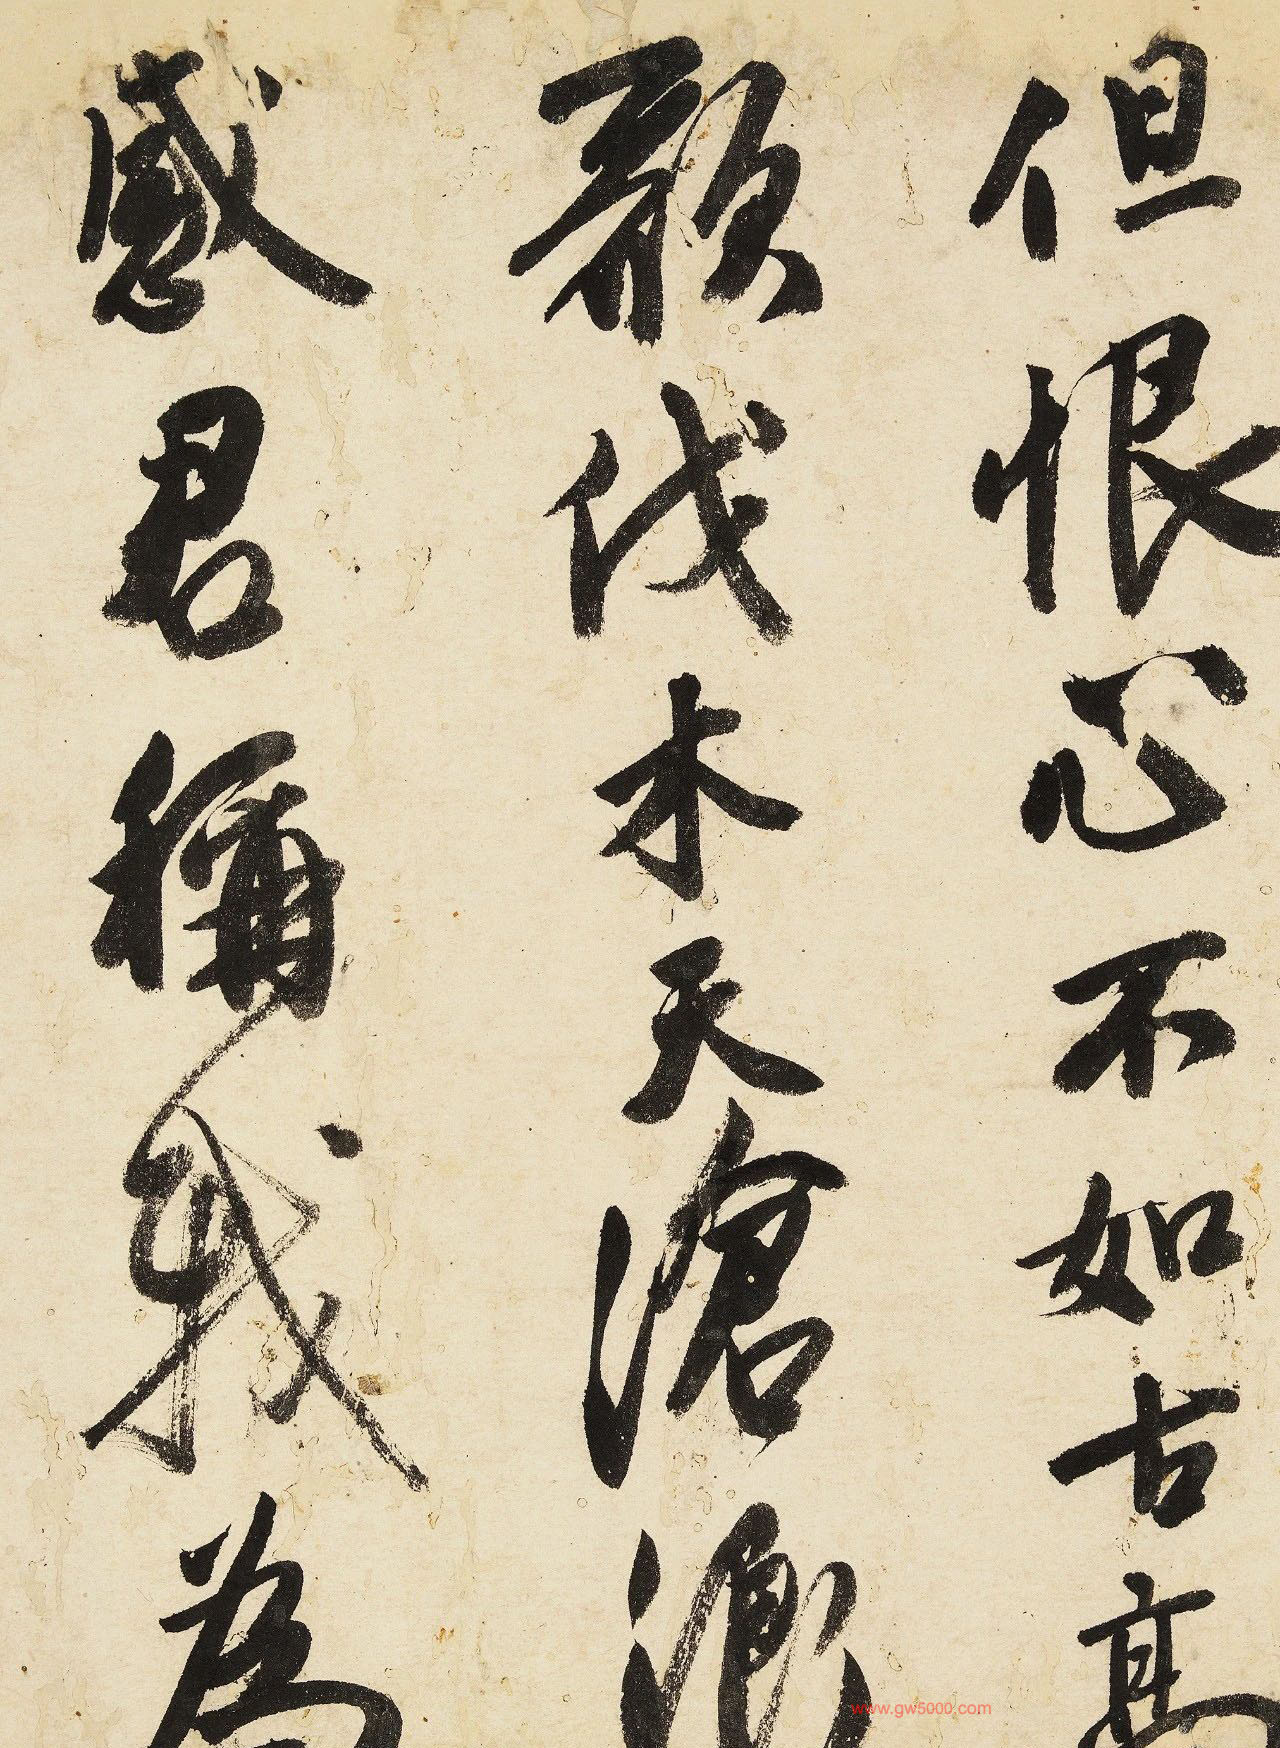 但恨心不如古高
歌伐木天滄浪
感君稱我為
www.gw5000.com